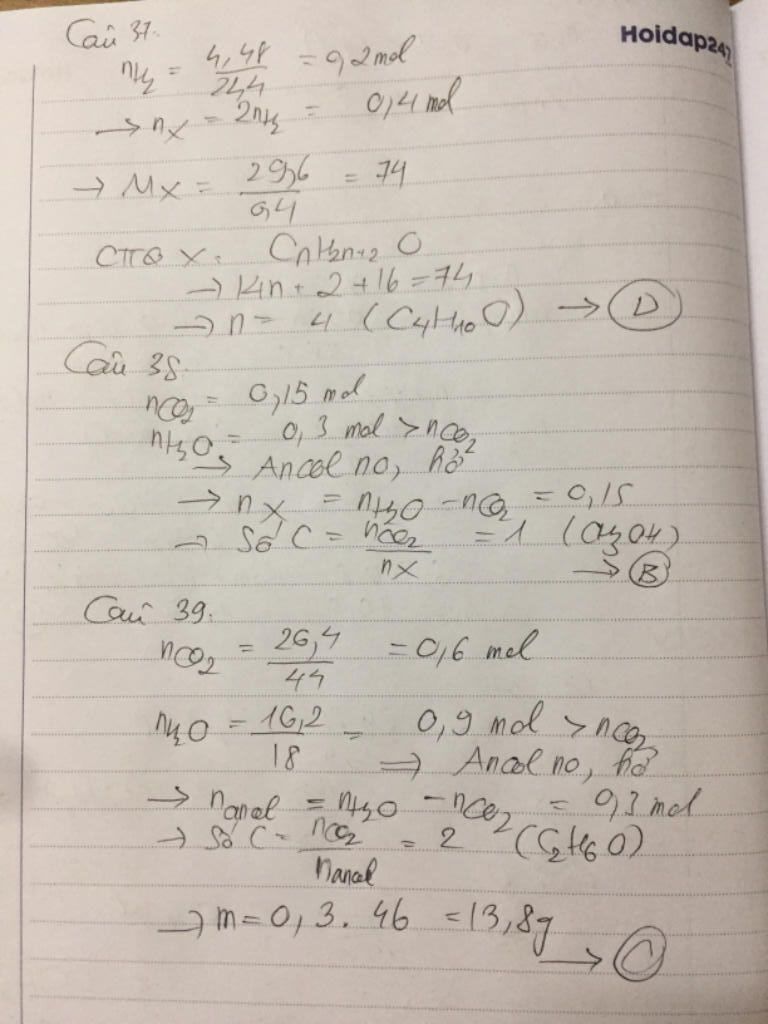 Câu 37.
Hoidap247
nH2 = 4,48 / 22,4 = 0,2 mol
→ nX = 2nH2 = 0,4 mol
→ MX = 29,6 / 0,4 = 74
CTTQ X: CnH2n+2 O
→ 14n + 2 + 16 = 74
→ n = 4 (C4H10O) → D
Câu 38.
nCO2 = 0,15 mol
nH2O = 0,3 mol > nCO2
→ Ancol no, hở
→ nX = nH2O - nCO2 = 0,15
→ Số C = nCO2 / nX = 1 (CH3OH)
→ B
Câu 39.
nCO2 = 26,4 / 44 = 0,6 mol
nH2O = 16,2 / 18 = 0,9 mol > nCO2
⇒ Ancol no, hở
→ nancol = nH2O - nCO2 = 0,3 mol
→ Số C = nCO2 / nancol = 2 (C2H6O)
→ m = 0,3 . 46 = 13,8g
→ C